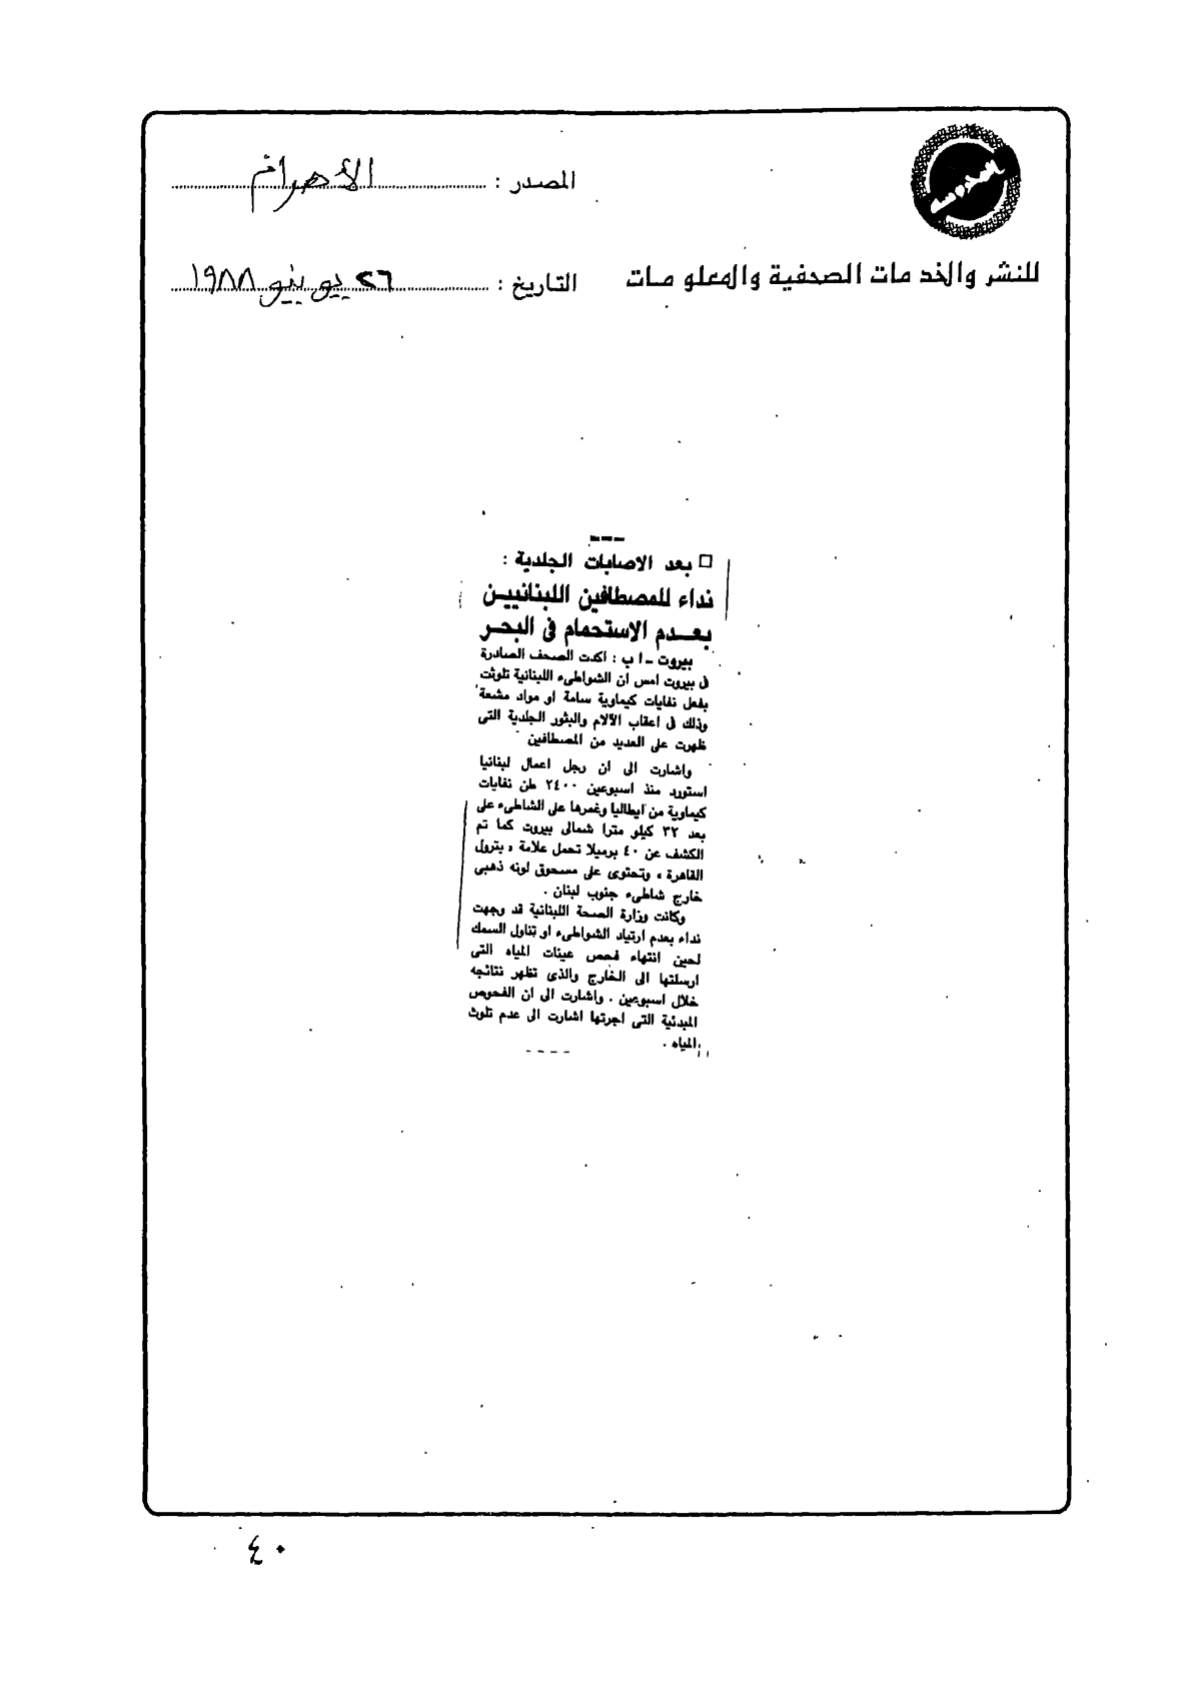 المصدر : الأهرام
للنشر والخدمات الصحفية والمعلومات
التاريخ : ٢٦ يونيو ١٩٨٨
□ بعد الاصابات الجلدية :
نداء للمصطافين اللبنانيين
بعدم الاستحمام فى البحر
بيروت ـ ا ب : اكدت الصحف الصادرة
فى بيروت امس ان الشواطىء اللبنانية تلوثت
بفعل نفايات كيماوية سامة او مواد مشعة
وذلك فى اعقاب الآلام والبثور الجلدية التى
ظهرت على العديد من المصطافين
واشارت الى ان رجل اعمال لبنانيا
استورد منذ اسبوعين ٢٤٠٠ طن نفايات
كيماوية من ايطاليا وغمرها على الشاطىء على
بعد ٣٢ كيلو مترا شمالى بيروت كما تم
الكشف عن ٤٠ برميلا تحمل علامة « بترول
القاهرة » وتحتوى على مسحوق لونه ذهبى
خارج شاطىء جنوب لبنان .
وكانت وزارة الصحة اللبنانية قد وجهت
نداء بعدم ارتياد الشواطىء او تناول السمك
لحين انتهاء فحص عينات المياه التى
ارسلتها الى الخارج والذى تظهر نتائجه
خلال اسبوعين . واشارت الى ان الفحوص
المبدئية التى اجرتها اشارت الى عدم تلوث
المياه .
٤٠